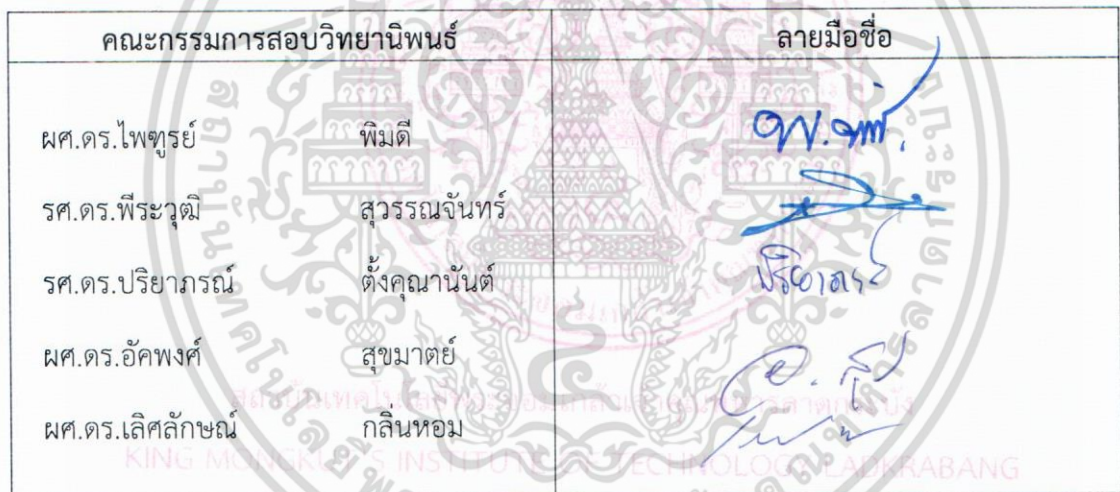 คณะกรรมการสอบวิทยานิพนธ์ ลายมือชื่อ
ผศ.ดร.ไพฑูรย์ พิมดี
รศ.ดร.พีระวุฒิ สุวรรณจันทร์
รศ.ดร.ปริยาภรณ์ ตั้งคุณานันต์
ผศ.ดร.อัคพงศ์ สุขมาตย์
ผศ.ดร.เลิศลักษณ์ กลิ่นหอม
KING MONGKUT'S INSTITUTE OF TECHNOLOGY LADKRABANG